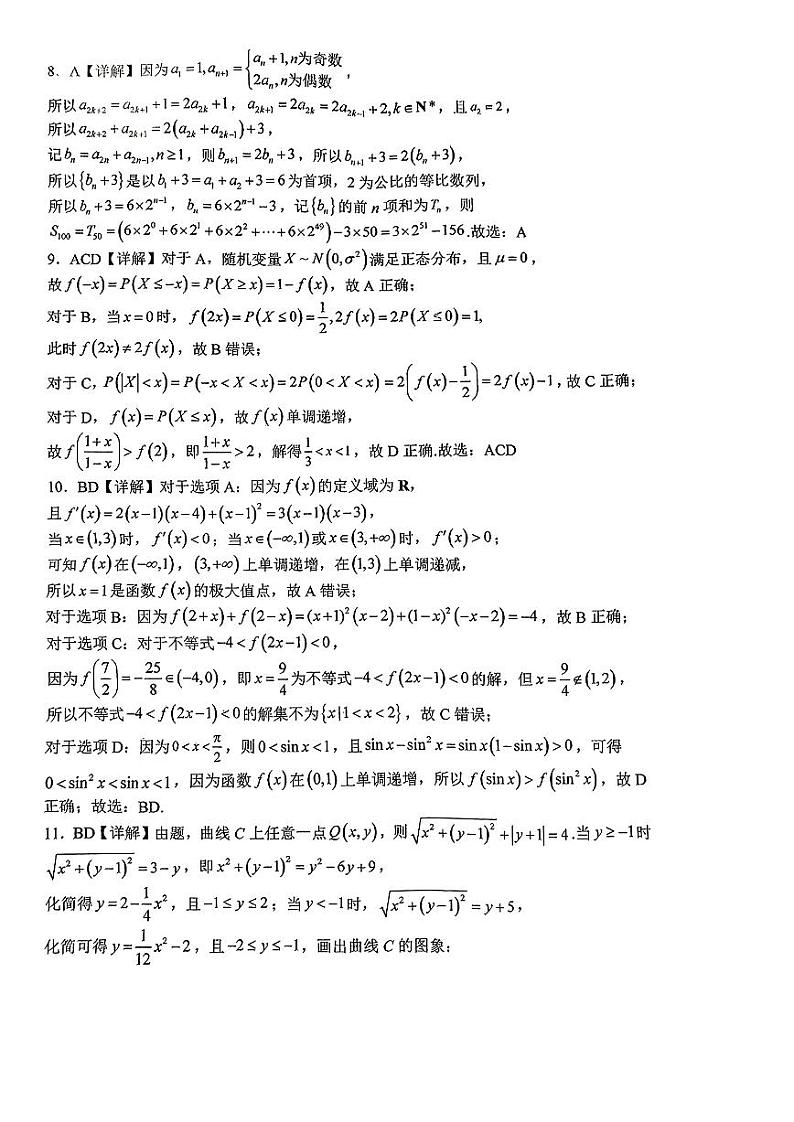 8．A【详解】因为 a₁ = 1, aₙ₊₁ = { aₙ + 1, n为奇数
2aₙ, n为偶数 ，
所以 a₂ₖ₊₂ = a₂ₖ₊₁ + 1 = 2a₂ₖ + 1，a₂ₖ₊₁ = 2a₂ₖ = 2a₂ₖ₋₁ + 2, k ∈ N*，且 a₂ = 2，
所以 a₂ₖ₊₂ + a₂ₖ₊₁ = 2(a₂ₖ + a₂ₖ₋₁) + 3，
记 bₙ = a₂ₙ + a₂ₙ₋₁, n ≥ 1，则 bₙ₊₁ = 2bₙ + 3，所以 bₙ₊₁ + 3 = 2(bₙ + 3)，
所以{bₙ + 3}是以 b₁ + 3 = a₁ + a₂ + 3 = 6 为首项，2 为公比的等比数列，
所以 bₙ + 3 = 6×2ⁿ⁻¹，bₙ = 6×2ⁿ⁻¹ − 3，记{bₙ}的前 n 项和为 Tₙ，则
S₁₀₀ = T₅₀ = (6×2⁰ + 6×2¹ + 6×2² + ⋯ + 6×2⁴⁹) − 3×50 = 3×2⁵¹ − 156.故选：A
9．ACD【详解】对于 A，随机变量 X ~ N(0, σ²) 满足正态分布，且 μ = 0，
故 f(−x) = P(X ≤ −x) = P(X ≥ x) = 1 − f(x)，故 A 正确；
对于 B，当 x = 0 时，f(2x) = P(X ≤ 0) = 1/2, 2f(x) = 2P(X ≤ 0) = 1,
此时 f(2x) ≠ 2f(x)，故 B 错误；
对于 C, P(|X| < x) = P(−x < X < x) = 2P(0 < X < x) = 2(f(x) − 1/2) = 2f(x) − 1, 故 C 正确；
对于 D，f(x) = P(X ≤ x)，故 f(x) 单调递增，
故 f((1+x)/(1−x)) > f(2)，即 (1+x)/(1−x) > 2，解得 1/3 < x < 1，故 D 正确.故选：ACD
10．BD【详解】对于选项 A：因为 f(x) 的定义域为 R，
且 f′(x) = 2(x−1)(x−4) + (x−1)² = 3(x−1)(x−3)，
当 x ∈ (1,3) 时，f′(x) < 0；当 x ∈ (−∞,1) 或 x ∈ (3,+∞) 时，f′(x) > 0；
可知 f(x) 在 (−∞,1)，(3,+∞) 上单调递增，在 (1,3) 上单调递减，
所以 x = 1 是函数 f(x) 的极大值点，故 A 错误；
对于选项 B：因为 f(2+x) + f(2−x) = (x+1)²(x−2) + (1−x)²(−x−2) = −4，故 B 正确；
对于选项 C：对于不等式 −4 < f(2x−1) < 0，
因为 f(7/2) = −25/8 ∈ (−4,0)，即 x = 9/4 为不等式 −4 < f(2x−1) < 0 的解，但 x = 9/4 ∉ (1,2)，
所以不等式 −4 < f(2x−1) < 0 的解集不为 {x|1 < x < 2}，故 C 错误；
对于选项 D：因为 0 < x < π/2，则 0 < sin x < 1，且 sin x − sin² x = sin x(1 − sin x) > 0，可得
0 < sin² x < sin x < 1，因为函数 f(x) 在 (0,1) 上单调递增，所以 f(sin x) > f(sin² x)，故 D
正确；故选：BD.
11．BD【详解】由题，曲线 C 上任意一点 Q(x, y)，则 √(x² + (y−1)²) + |y+1| = 4 .当 y ≥ −1 时
√(x² + (y−1)²) = 3 − y，即 x² + (y−1)² = y² − 6y + 9，
化简得 y = 2 − 1/4 x²，且 −1 ≤ y ≤ 2；当 y < −1 时，√(x² + (y−1)²) = y + 5，
化简可得 y = 1/12 x² − 2，且 −2 ≤ y ≤ −1，画出曲线 C 的图象；